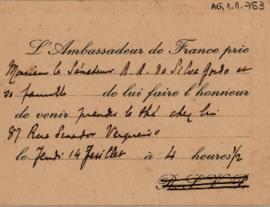 AG.1.1.753
L'Ambassadeur de France prie
Monsieur le Sénateur A. A. da Silva Gordo et
sa famille de lui faire l'honneur
de venir prendre le thé chez lui
87 Rue Senador Vergueiro
le Jeudi 14 Juillet à 4 heures 1/2
R.S.V.P.